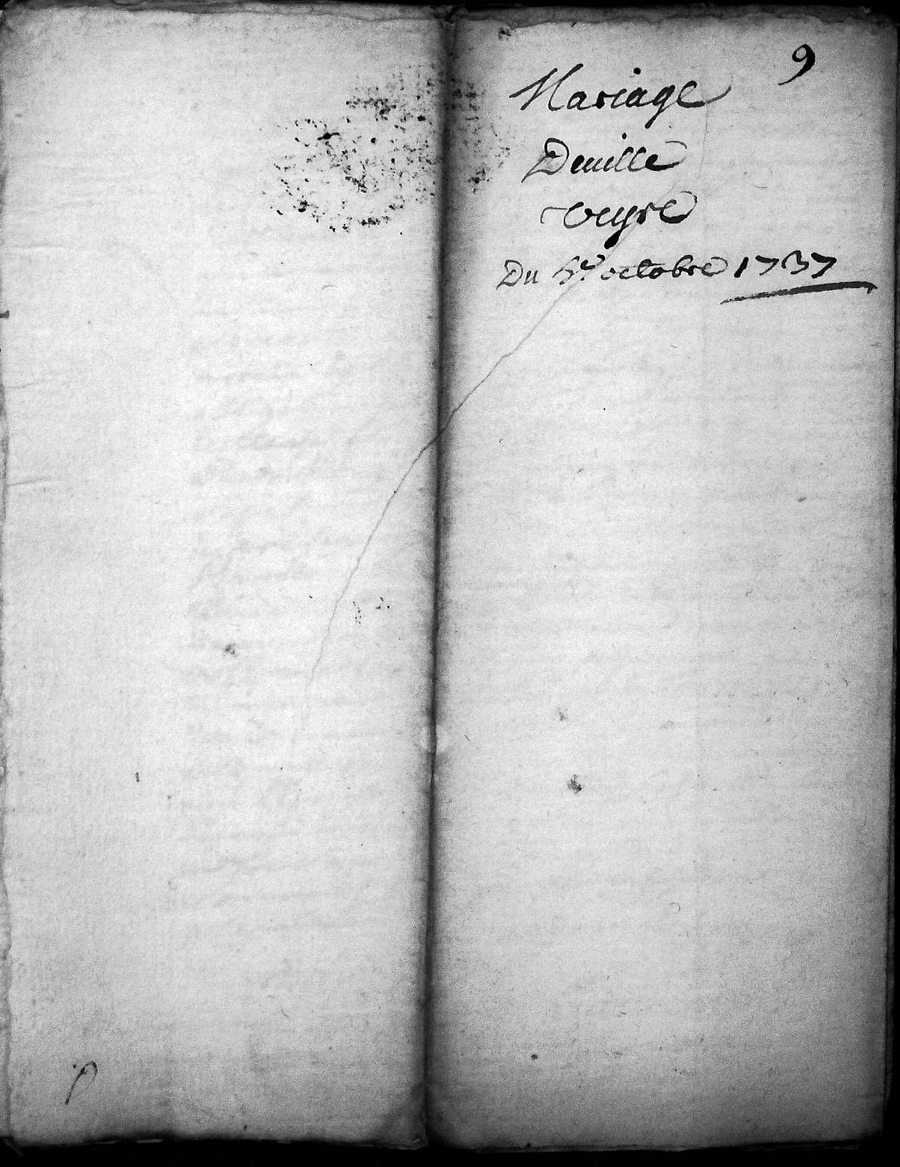 9
Mariage
Deuille
veyre
Du 5e octobre 1737